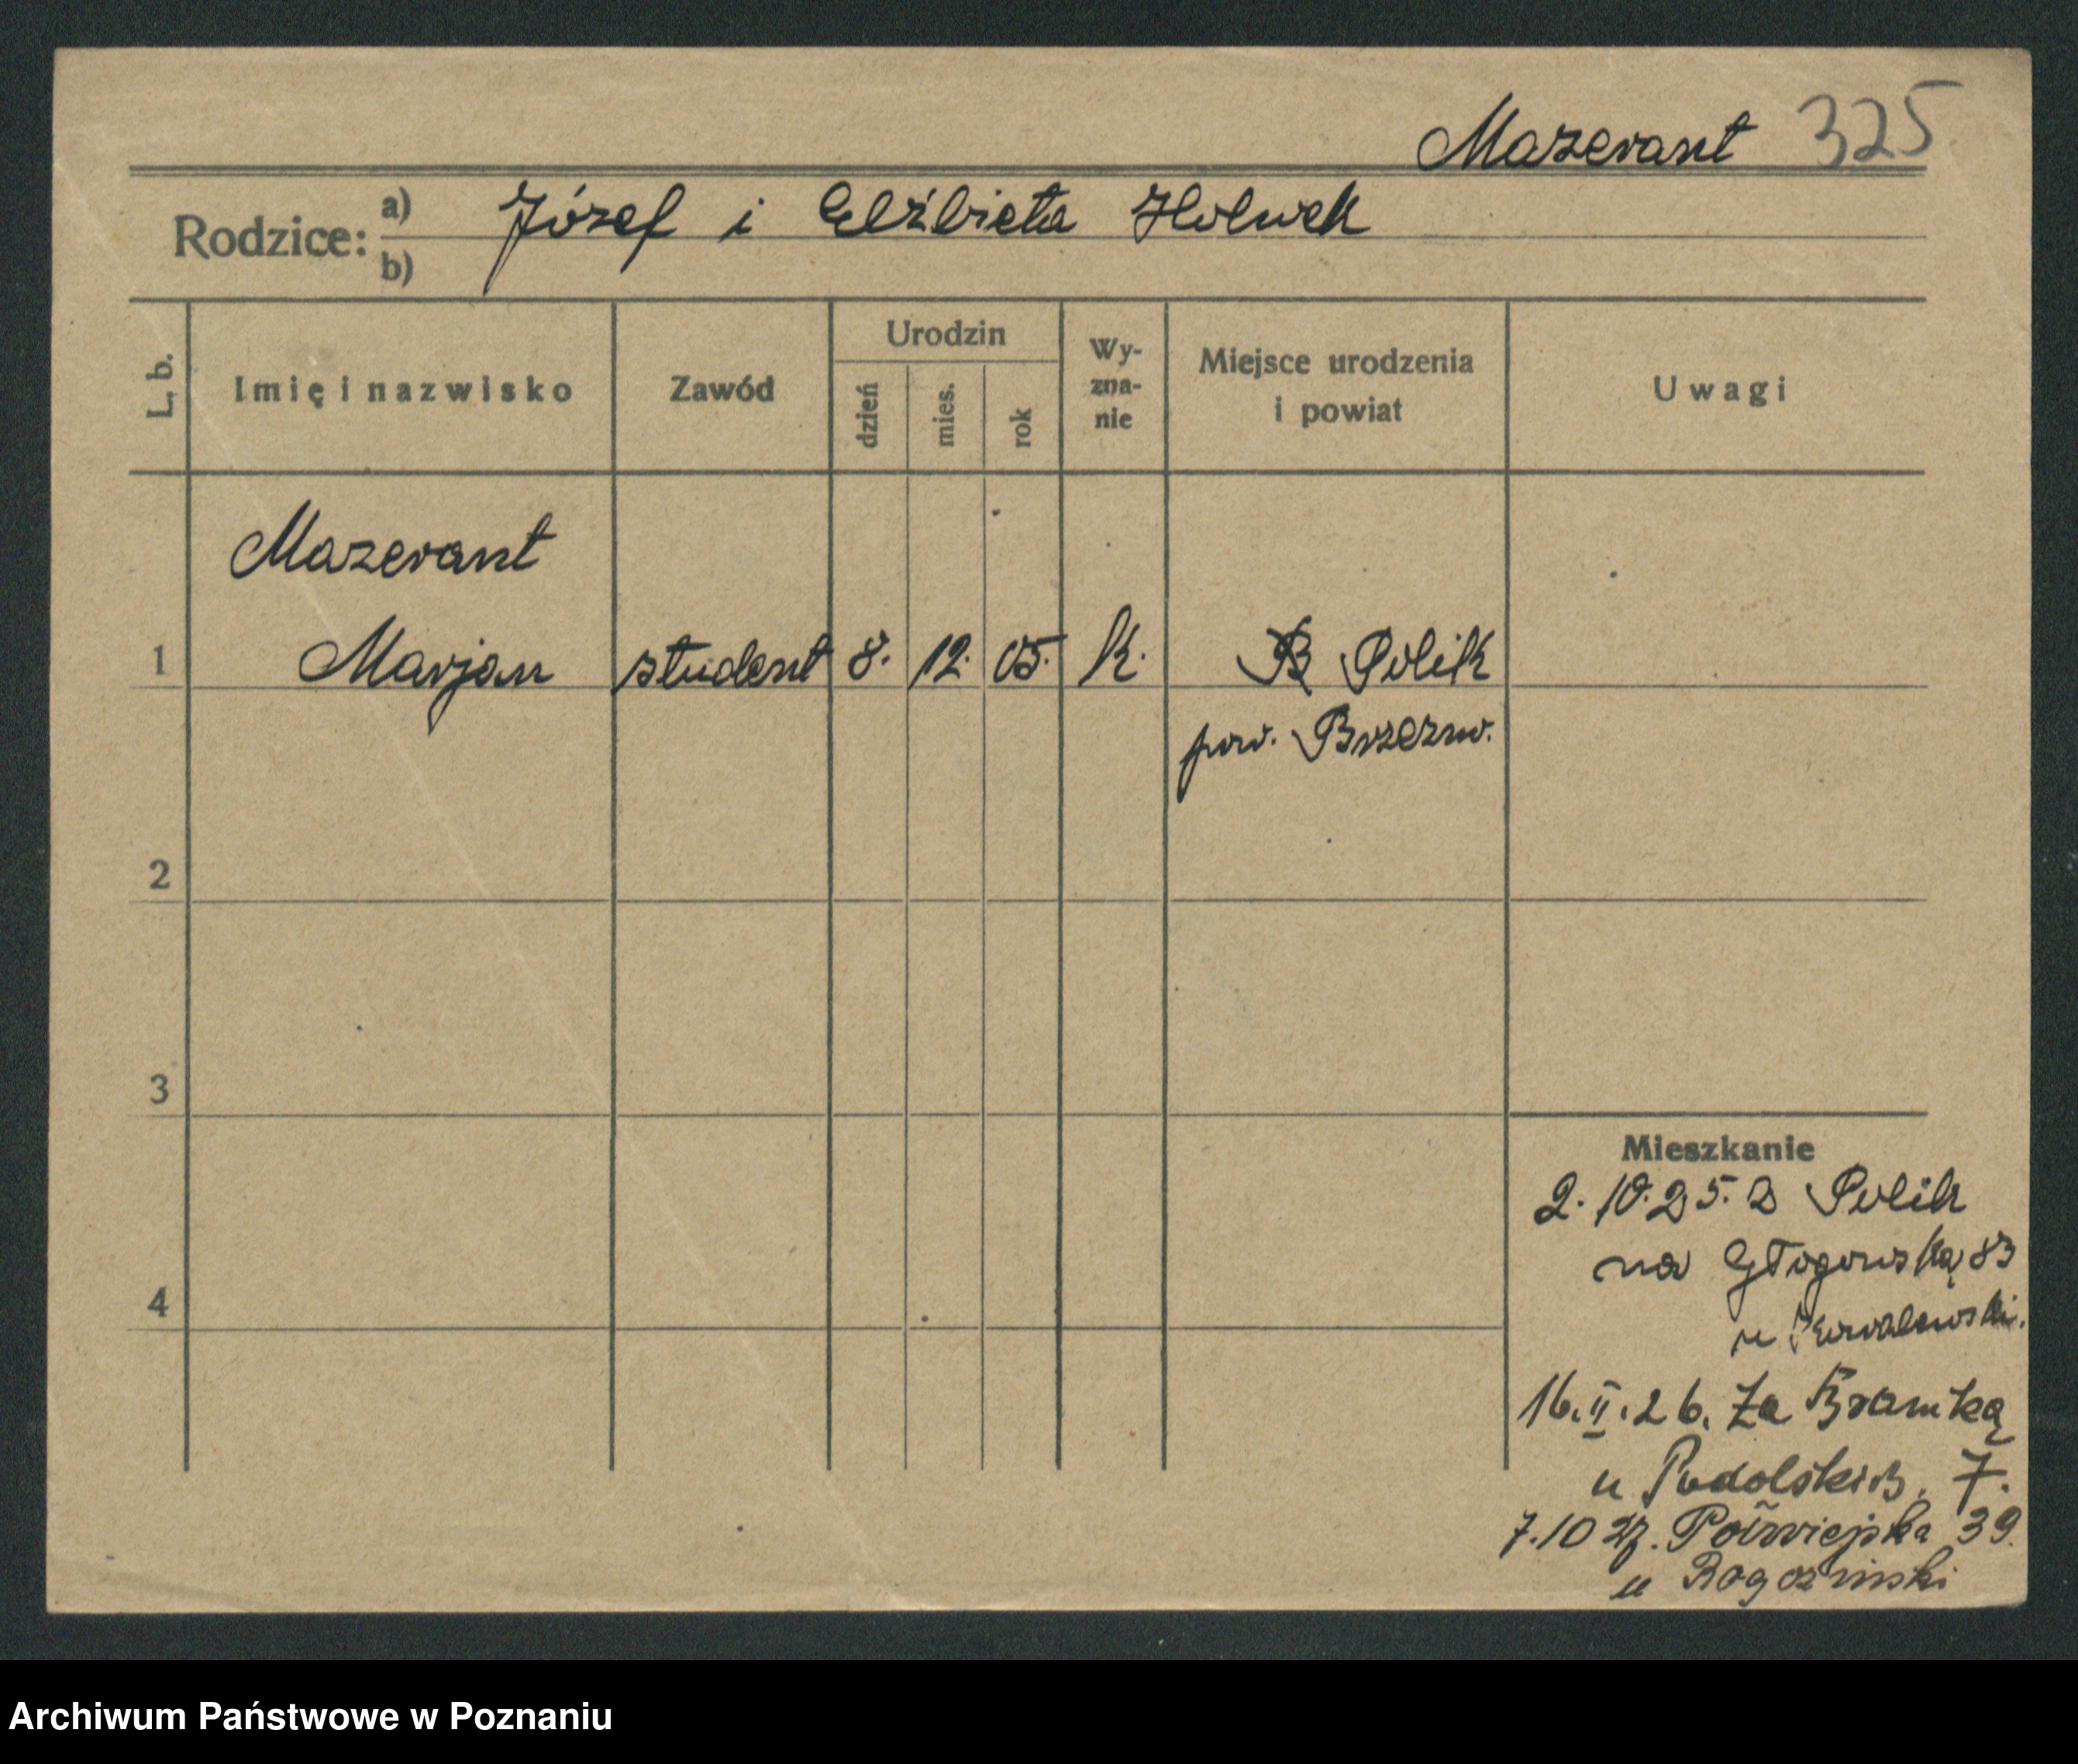 Mazerant 325
Rodzice: a) Józef i Elżbieta Holwek
b)
L. b. Imię i nazwisko Zawód Urodzin dzień mies. rok Wy-zna-nie Miejsce urodzenia i powiat Uwagi
Mazerant
1 Marjan student 8. 12. 05. k. Polik
pow. Brzeziw.
2
3
4
Mieszkanie
2.10.25. z Polik
na Głogowską 83
u
16.II.26. Za Bramką
u Podolskich. 7.
7.10 27. Półwiejska 39.
u Rogoziński
Archiwum Państwowe w Poznaniu